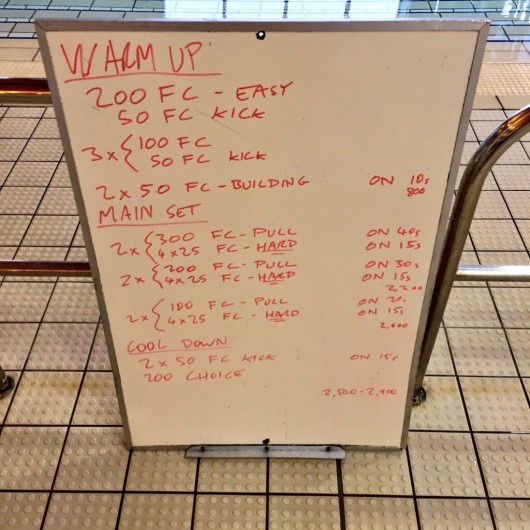 WARM UP
200 FC - EASY
50 FC KICK
3x { 100 FC
50 FC KICK
2 x 50 FC - BUILDING ON 10s
800
MAIN SET
2x { 300 FC - PULL ON 40s
4x25 FC - HARD ON 15s
2x { 200 FC - PULL ON 30s
4x25 FC - HARD ON 15s
2,200
2x { 100 FC - PULL ON 20s
4x25 FC - HARD ON 15s
2,600
COOL DOWN
2 x 50 FC KICK ON 15s
200 CHOICE
2,500-2,900